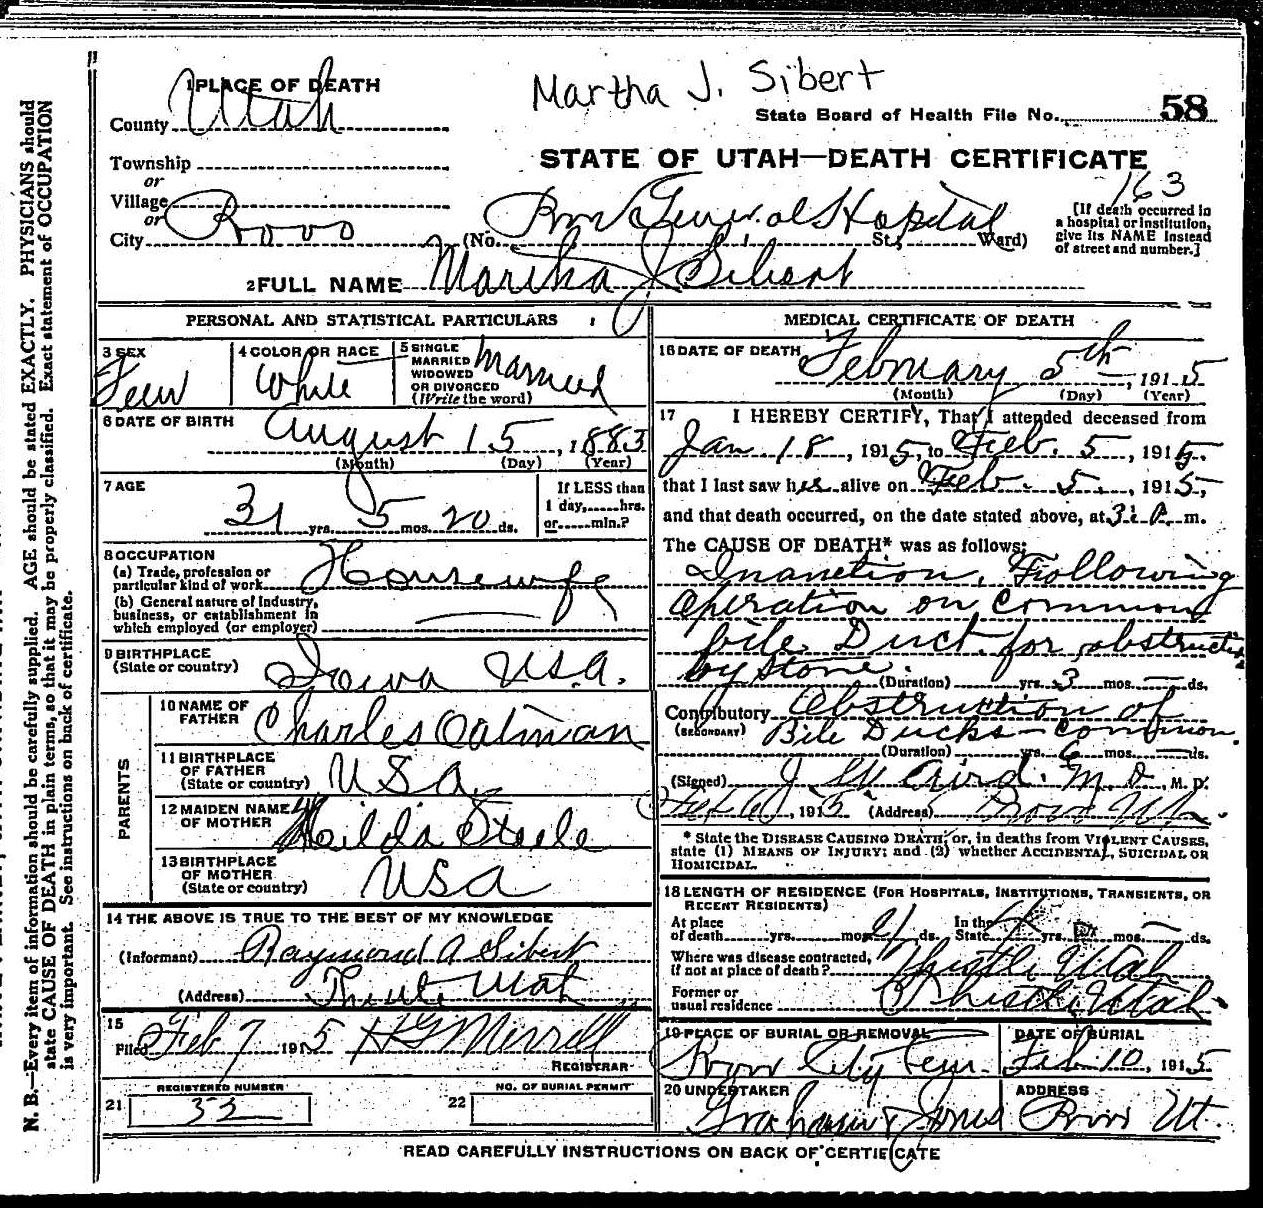 Martha J. Sibert
1 PLACE OF DEATH
County Utah
State Board of Health File No. 58
Township
STATE OF UTAH—DEATH CERTIFICATE
or
163
Village
or
City Provo
(No. Provo General Hospital St., Ward)
[If death occurred in
a hospital or institution,
give its NAME instead
of street and number.]
2 FULL NAME Martha J Sibert
PERSONAL AND STATISTICAL PARTICULARS
3 SEX
Fem
4 COLOR OR RACE
White
5 SINGLE
MARRIED
WIDOWED
OR DIVORCED
(Write the word)
Married
6 DATE OF BIRTH
August 15, 1883
(Month) (Day) (Year)
7 AGE
31 yrs. 5 mos. 20 ds.
If LESS than
1 day, hrs.
or min.?
8 OCCUPATION
(a) Trade, profession or
particular kind of work Housewife
(b) General nature of industry,
business, or establishment in
which employed (or employer)
9 BIRTHPLACE
(State or country)
Iowa USA.
PARENTS
10 NAME OF
FATHER
Charles Oatman
11 BIRTHPLACE
OF FATHER
(State or country)
USA
12 MAIDEN NAME
OF MOTHER
Hilda Steele
13 BIRTHPLACE
OF MOTHER
(State or country)
USA
14 THE ABOVE IS TRUE TO THE BEST OF MY KNOWLEDGE
(Informant) Raymond A Sibert
(Address) Thistle Utah
15
Filed Feb 7 1915 H G Merrill
REGISTRAR
REGISTERED NUMBER
21 33
NO. OF BURIAL PERMIT
22
MEDICAL CERTIFICATE OF DEATH
16 DATE OF DEATH
February 5th, 1915
(Month) (Day) (Year)
17 I HEREBY CERTIFY, That I attended deceased from
Jan. 18, 1915, to Feb. 5, 1915.
that I last saw her alive on Feb. 5, 1915,
and that death occurred, on the date stated above, at P. m.
The CAUSE OF DEATH* was as follows:
Inanetion, Following
operation on Common
bile Duct for obstruction
by stone.
(Duration) yrs. 3 mos. ds.
Contributory Obstruction of
(SECONDARY) Bile Ducks-common.
(Duration) yrs. 6 mos. ds.
(Signed) J. W. Aird. M.D. M. D.
Feb 6, 1915 (Address) Provo Ut.
* State the DISEASE CAUSING DEATH, or, in deaths from VIOLENT CAUSES,
state (1) MEANS OF INJURY; and (2) whether ACCIDENTAL, SUICIDAL OR
HOMICIDAL.
18 LENGTH OF RESIDENCE (FOR HOSPITALS, INSTITUTIONS, TRANSIENTS, OR
RECENT RESIDENTS)
At place
of death yrs. mos. ds.
In the
State yrs. mos. ds.
Where was disease contracted,
if not at place of death? Thistle Utah
Former or
usual residence Thistle, Utah
19 PLACE OF BURIAL OR REMOVAL
Provo City Cem.
DATE OF BURIAL
Feb. 10, 1915
20 UNDERTAKER
Graham & Jones
ADDRESS
Provo Ut.
READ CAREFULLY INSTRUCTIONS ON BACK OF CERTIFICATE
N. B.—Every item of information should be carefully supplied. AGE should be stated EXACTLY. PHYSICIANS should
state CAUSE OF DEATH in plain terms, so that it may be properly classified. Exact statement of OCCUPATION
is very important. See instructions on back of certificate.